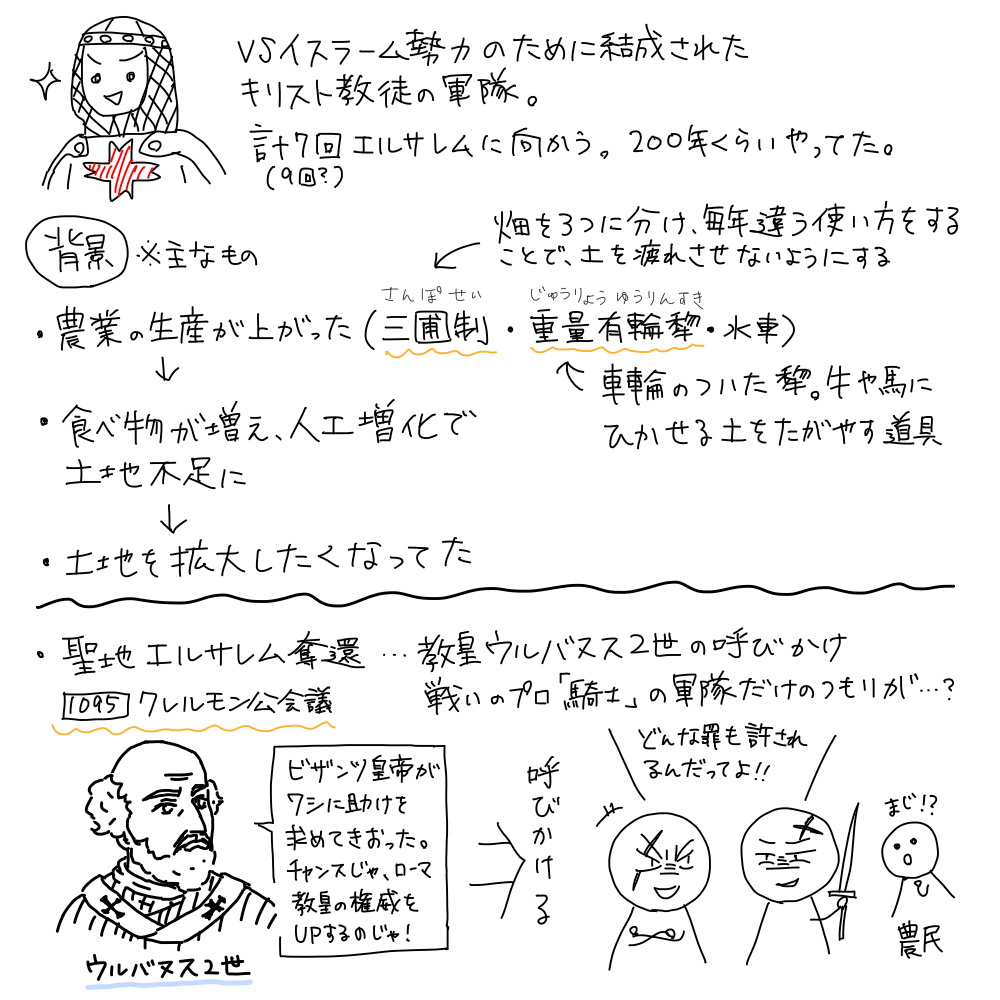 VSイスラーム勢力のために結成された
キリスト教徒の軍隊。
計7回エルサレムに向かう。200年くらいやってた。
(9回?)
背景 ※主なもの
畑を3つに分け、毎年違う使い方をする
ことで、土を疲れさせないようにする
さんぽせい じゅうりょうゆうりんすき
・農業の生産が上がった(三圃制・重量有輪犂・水車)
車輪のついた犂。牛や馬に
ひかせる土をたがやす道具
・食べ物が増え、人工増化で
土地不足に
・土地を拡大したくなってた
・聖地エルサレム奪還…教皇ウルバヌス2世の呼びかけ
1095 クレルモン公会議
戦いのプロ「騎士」の軍隊だけのつもりが…?
ビザンツ皇帝が
ワシに助けを
求めてきおった。
チャンスじゃ、ローマ
教皇の権威を
UPするのじゃ!
ウルバヌス2世
呼びかける
どんな罪も許され
るんだってよ!!
まじ!?
農民